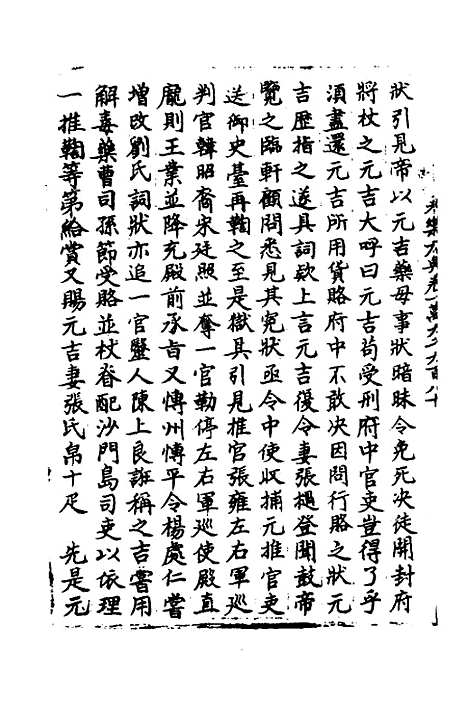 狀引見帝以元吉藥母事狀暗昧令免死决徒開封府
將杖之元吉大呼曰元吉苟受刑府中官吏豈得了乎
湏盡還元吉所用貨賂府中不敢决因問行賂之狀元
吉歷指之遂具詞欵上言元吉復令妻張檛登聞鼓帝
覽之臨軒顧問悉見其寃狀亟令中使收捕元推官吏
送御史臺再鞫之至是獄具引見推官張雍左右軍巡
判官韓昭裔宋廷照並奪一官勒停左右軍巡使殿直
龐則王業並降充殿前承㫖又慱州慱平令楊處仁嘗
增攺劉氏詞狀亦追一官毉人陳上良誑稱之吉嘗用
解毒藥曹司孫節受賂並杖脊配沙門島司吏以依理
一推鞫等第給賞又賜元吉妻張氏帛十疋　先是元
永樂大典卷一萬九千九百八十